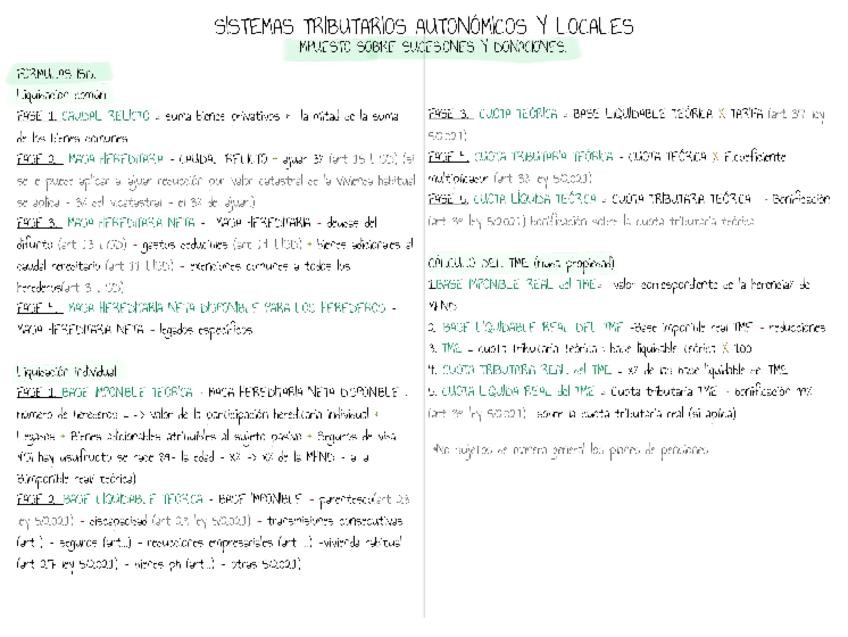 SISTEMAS TRIBUTARIOS AUTONÓMICOS Y LOCALES
IMPUESTO SOBRE SUCESIONES Y DONACIONES.
FORMULAS ISD.
Liquidación común
FASE 1. CAUDAL RELICTO = suma bienes privativos + la mitad de la suma
de los bienes comunes
FASE 2. MASA HEREDITARIA = CAUDAL RELICTO + ajuar 3% (art 15 LISD) (si
se puede aplicar a ajuar reducción por valor catastral de la vivienda habitual
se aplica - 3% del v.catastral - el 3% de ajuar)
FASE 3. MASA HEREDITARIA NETA = MASA HEREDITARIA - deudas del
difunto (art 13 LISD) - gastos deducibles (art 14 LISD) + bienes adicionales al
caudal hereditario (art 11 LISD) - exenciones comunes a todos los
herederos(art 3 LISD)
FASE 4. MASA HEREDITARIA NETA DISPONIBLE PARA LOS HEREDEROS =
MASA HEREDITARIA NETA - legados específicos
Liquidación individual
FASE 1. BASE IMPONIBLE TEÓRICA = MASA HEREDITARIA NETA DISPONIBLE :
número de herederos = -> valor de la participación hereditaria individual +
Legados + Bienes adicionables atribuibles al sujeto pasivo + Seguros de vida
hay usufructo se hace 89- la edad = x% -> x% de la MHND =
B.imponible real teórica)
FASE 2. BASE LIQUIDABLE TEÓRICA = BASE IMPONIBLE - parentesco(art 23
ley 5/2021) - discapacidad (art 23 ley 5/2021) - transmisiones consecutivas
(art ) - seguros (art...) - reducciones empresariales (art ...) -vivienda habitual
(art 27 ley 5/2021) - bienes ph (art...) - otras 5/2021)
FASE 3. CUOTA TEÓRICA = BASE LIQUIDABLE TEÓRICA X TARIFA (art 37 ley
5/2021)
FASE 4. CUOTA TRIBUTARIA TEÓRICA = CUOTA TEÓRICA X Coeficiente
multiplicador (art 38 ley 5/2021)
FASE 5. CUOTA LÍQUIDA TEÓRICA = CUOTA TRIBUTARIA TEÓRICA - Bonificación
(art 39 ley 5/2021) bonificación sobre la cuota tributaria teórica
CÁLCULO DEL TME (nuda propiedad)
1.BASE IMPONIBLE REAL del TME= valor correspondiente de la herencia% de
MHND
2. BASE LIQUIDABLE REAL DEL TME =Base imponible real TME - reducciones
3. TME = cuota tributaria teórica : base liquidable teórica X 100
4. CUOTA TRIBUTARIA REAL del TME = x% de la base liquidable de TME
5. CUOTA LIQUIDA REAL del TME = Cuota tributaria TME - bonificación 99%
(art 39 ley 5/2021) sobre la cuota tributaria real (si aplica)
*No sujetos de manera general los planes de pensiones